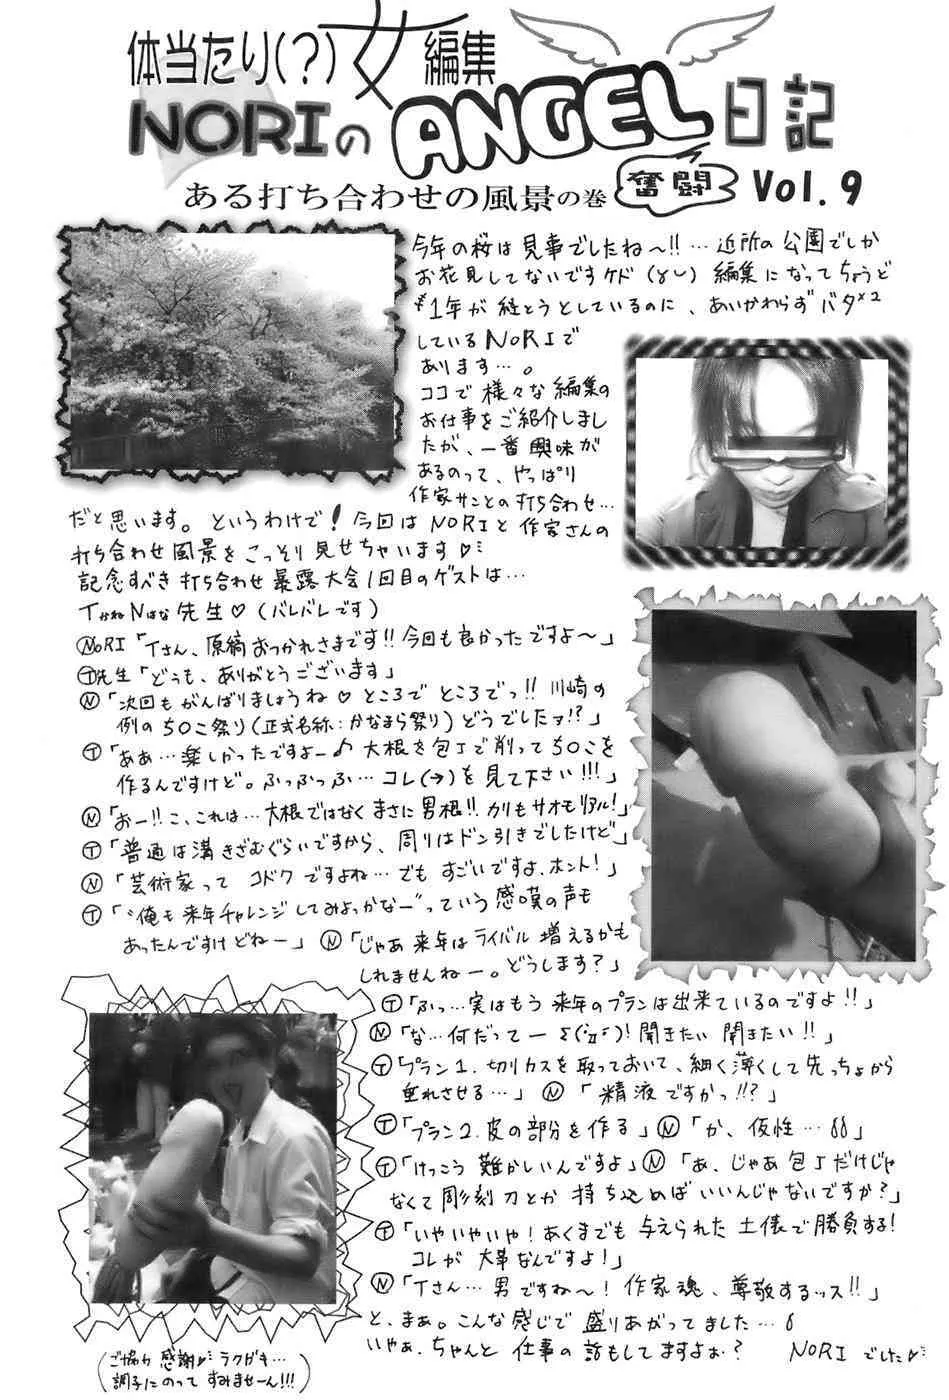 体当たり(?)女編集
NORIのANGEL日記
ある打ち合わせの風景の巻 奮闘 Vol.9
今年の桜は見事でしたね〜!!…近所の公園でしか
お花見してないですケド 編集になってちょうど
1年が経とうとしているのに、あいかわらずバタ×2
しているNORIで
あります…。
ココで様々な編集の
お仕事をご紹介しまし
たが、一番興味が
あるのって、やっぱり
作家サンとの打ち合わせ…
だと思います。というわけで!今回はNORIと作家さんの
打ち合わせ風景をこっそり見せちゃいます♡
記念すべき打ち合わせ暴露大会1回目のゲストは…
TかねNはな先生♡(バレバレです)
NORI「Tさん、原稿おつかれさまです!!今回も良かったですよ〜」
T先生「どうも、ありがとうございます」
N「次回もがんばりましょうね♡ところでところでっ!!川崎の
例のち○こ祭り(正式名称:かなまら祭り)どうでしたヮ!?」
T「ああ…楽しかったですよー♪大根を包丁で削ってち○こを
作るんですけど。ふっふっふ…コレ(→)を見て下さい!!!」
N「おー!!こ、これは…大根ではなくまさに男根!!カリもサオもリアル!」
T「普通は溝きざむぐらいですから、周りはドン引きでしたけど」
N「芸術家ってコドクですよね…でもすごいですよ、ホント!」
T「"俺も来年チャレンジしてみよっかなー"っていう感嘆の声も
あったんですけどねー」N「じゃあ来年はライバル増えるかも
しれませんねー。どうします?」
T「ふっ…実はもう来年のプランは出来ているのですよ!!」
N「な…何だってー!聞きたい聞きたい!!」
T「プラン1.切りカスを取っておいて、細く薄くして先っちょから
垂れさせる…」N「精液ですかっ!!?」
T「プラン2.皮の部分を作る」N「か、仮性…」
T「けっこう難かしいんですよ」N「あ、じゃあ包丁だけじゃ
なくて彫刻刀とか持ち込めばいいんじゃないですか?」
T「いやいやいや!あくまでも与えられた土俵で勝負する!
コレが大事なんですよ!」
N「Tさん…男ですね〜!作家魂、尊敬するッス!!」
と、まぁ。こんな感じで盛りあがってました…
いやぁ、ちゃんと仕事の話もしてますよぉ? NORIでした♡
(ご協力感謝♡ラクガキ…
調子にのってすみませーん!!!)